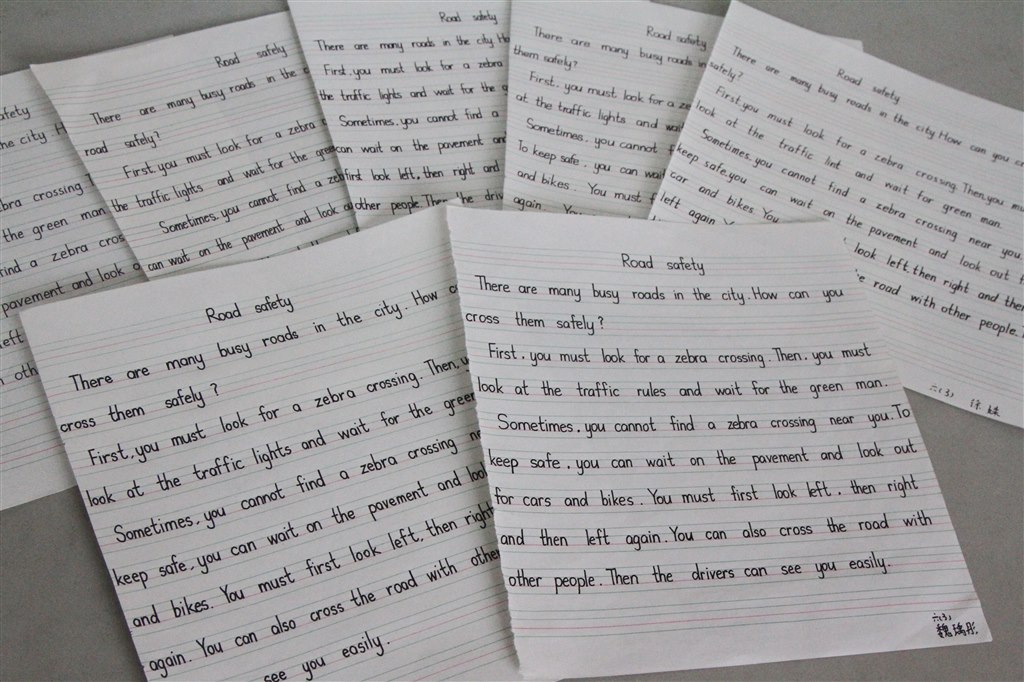 fety
he city. H
bra crossing. T
the green man
find a zebra cros
pavement and look o
left
n oth
Road safety
There are many busy roads in the c
road safety?
First, you must look for a zebra
the traffic lights and wait for the gree
Sometimes, you cannot find a ze
can wait on the pavement and look o
Road safety
There are many roads in the city. Ho
First, you must look for a zebra
the traffic lights and wait for the g
Sometimes, you cannot find a
can wait on the pavement an
first look left, then right and
other people. Then the driv
Road safety
There are many busy roads in
them safely?
First, you must look for a ze
at the traffic lights and wai
Sometimes, you cannot f
To keep safe, you can wa
and bikes. You must f
again. You
Road safety
There are many busy roads in the city. How can you c
safely?
First, you must look for a zebra crossing. Then, you mu
look at the traffic lint and wait for green man.
Sometimes, you cannot find a zebra crossing near you.
keep safe, you can wait on the pavement and look out f
car and bikes. You look left, then right and then
left again. You e road with other people.
六(3) 徐
Road safety
There are many busy roads in the city. How c
cross them safely?
First, you must look for a zebra crossing. Then, y
look at the traffic lights and wait for the green
Sometimes, you cannot find a zebra crossing ne
keep safe, you can wait on the pavement and look
and bikes. You must first look left, then right
again. You can also cross the road with other
see you easily.
Road safety
There are many busy roads in the city. How can you
cross them safely?
First, you must look for a zebra crossing. Then, you must
look at the traffic rules and wait for the green man.
Sometimes, you cannot find a zebra crossing near you. To
keep safe, you can wait on the pavement and look out
for cars and bikes. You must first look left, then right
and then left again. You can also cross the road with
other people. Then the drivers can see you easily.
六(3)
魏瑀彤